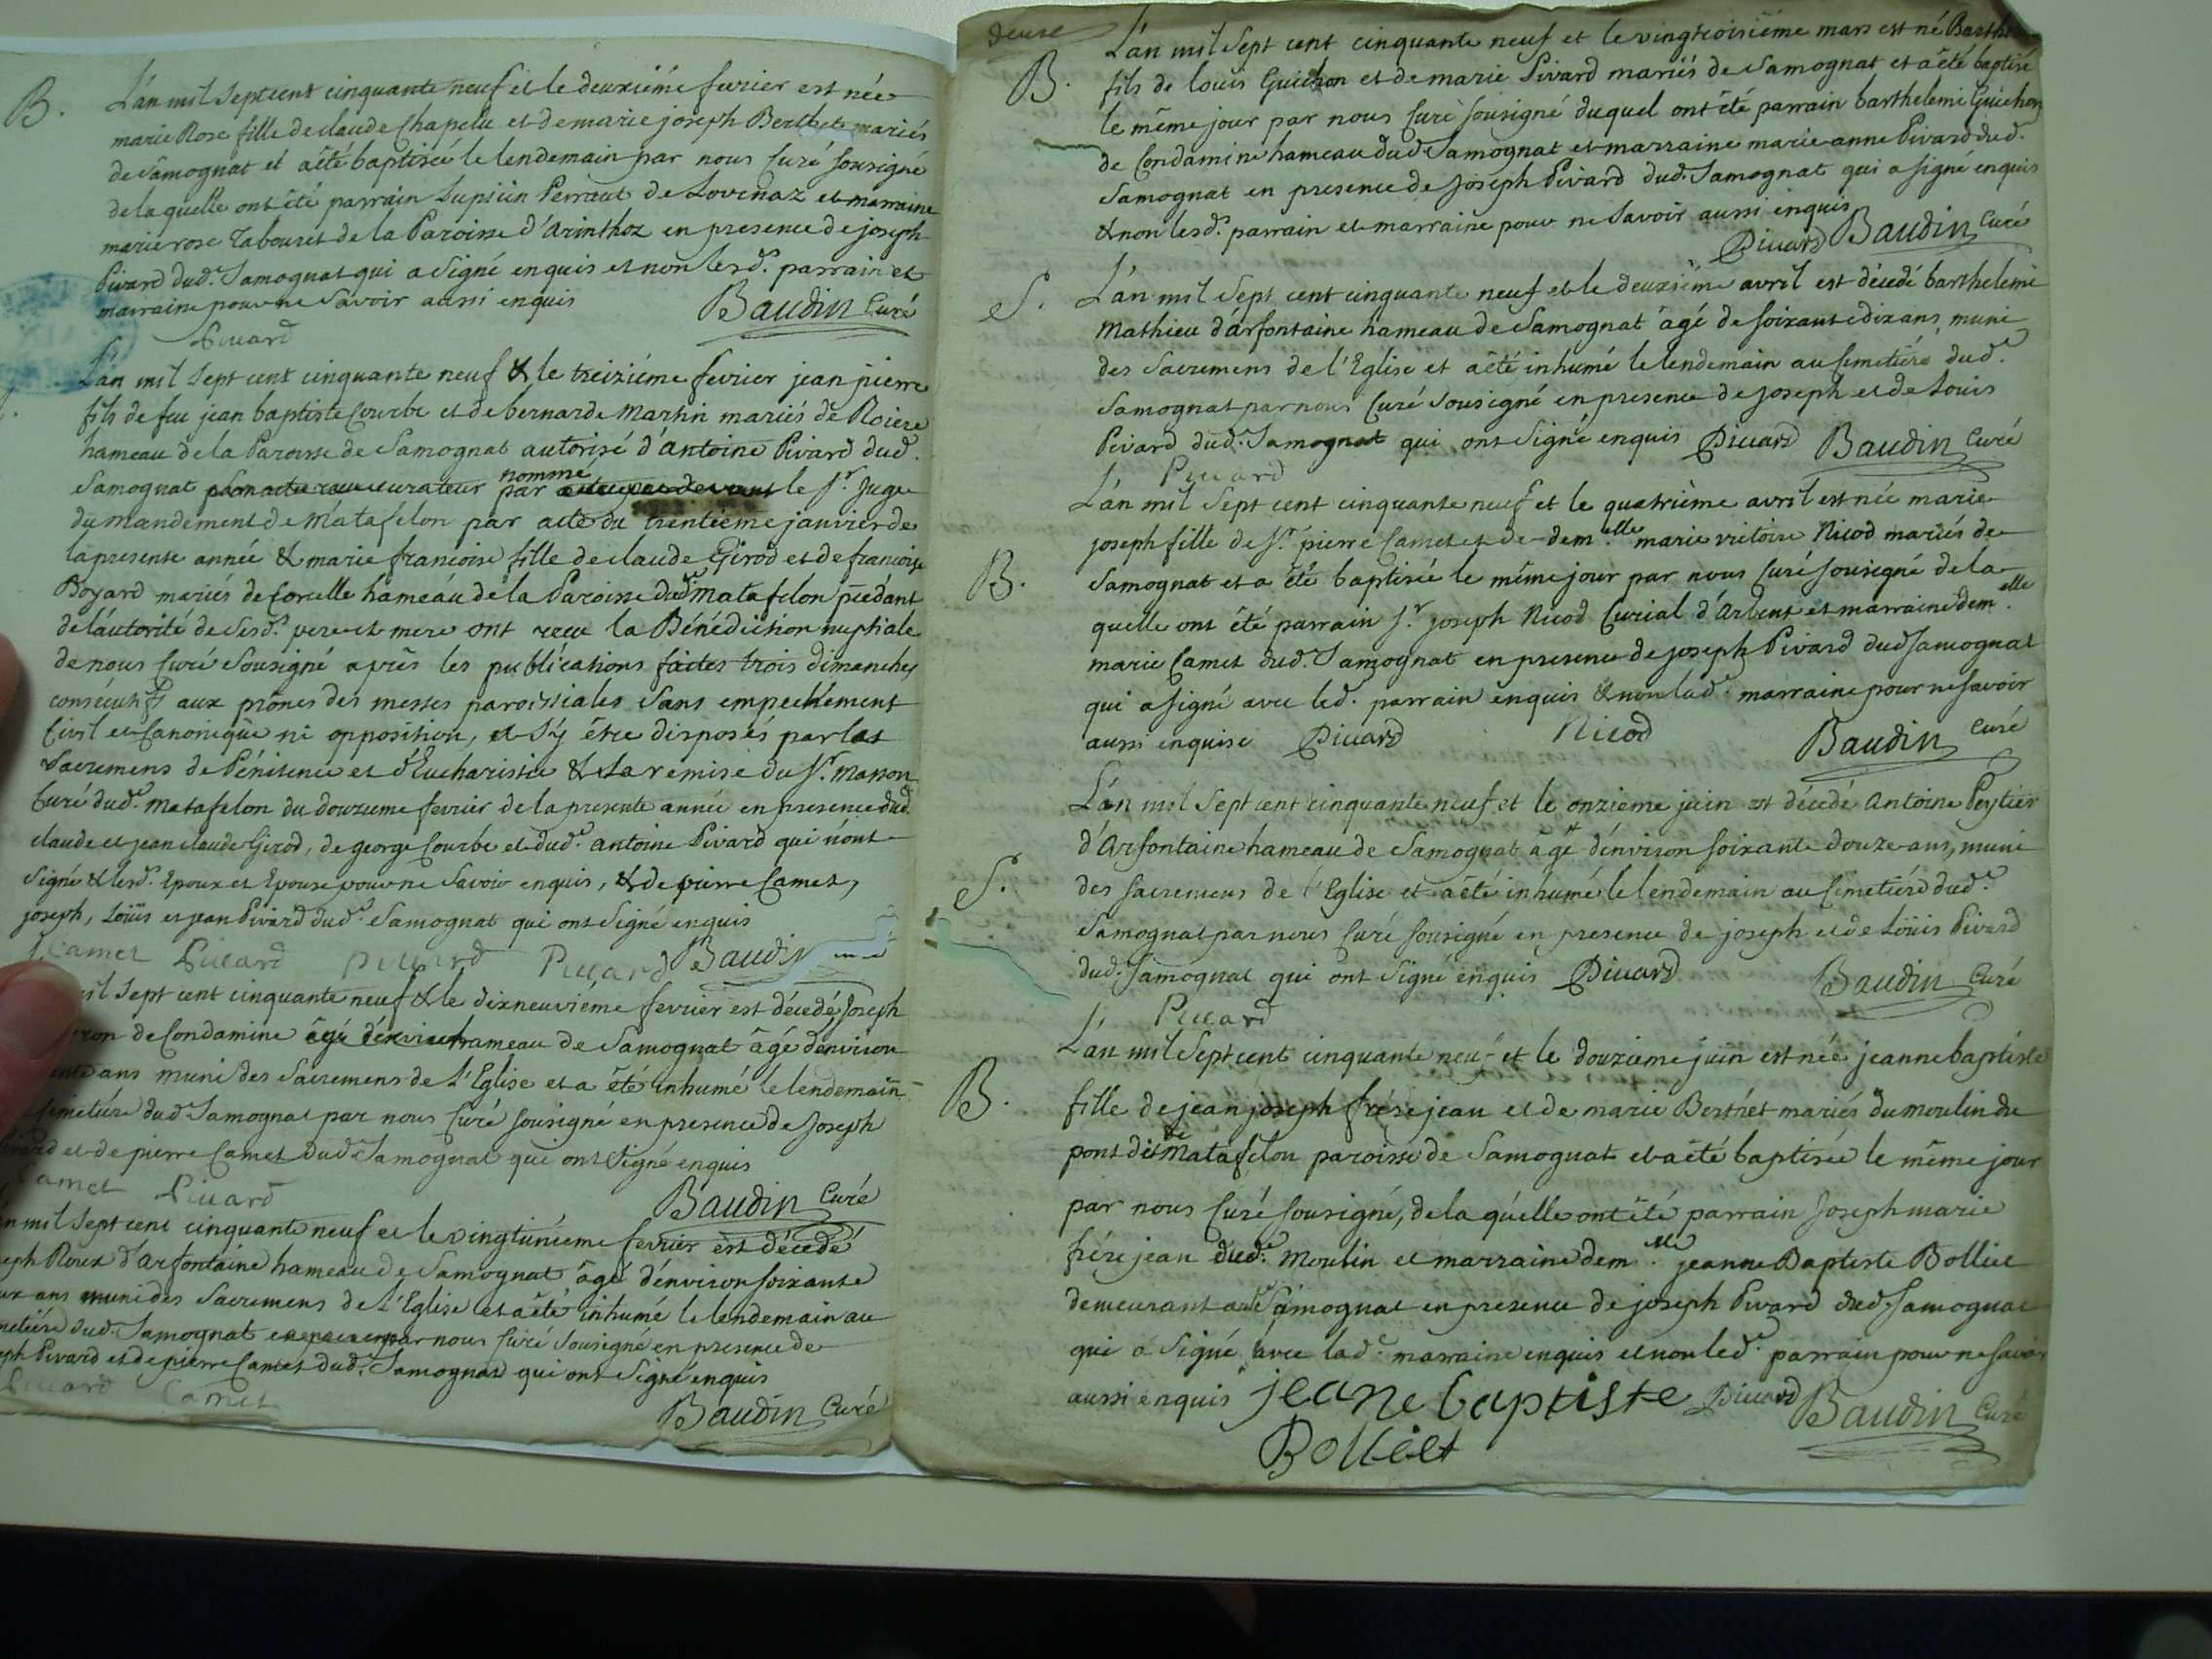 B. L'an mil sept cent cinquante neuf et le deuxiéme fevrier est née
marie Rose fille de claude Chapelu et de marie joseph Berthet mariés
de Samognat et a été baptisée le lendemain par nous Curé sousigné
de la quelle ont été parrain Lupicin Perraut de Lovenaz et marraine
marie rose Tabouret de la Paroisse d'Arinthoz en presence de joseph
Pivard dud. Samognat qui a signé enquis et non lesd. parrain et
marraine pour ne savoir aussi enquis Baudin Curé
Pivard
L'an mil sept cent cinquante neuf & le treiziéme fevrier jean pierre
fils de feu jean baptiste Courbe et de bernarde Martin mariés de Roiere
hameau de la Paroisse de Samognat autorisé d'Antoine Pivard dud.
Samognat curateur nommé par le Sr. Juge
du mandement de Matafelon par acte du trentième janvier de
la presente année & marie francoise fille de claude Girod et de francoise
Boyard mariés de Corcelle hameau de la Paroisse dud. Matafelon procédant
de l'autorité de sesd. pere et mere ont reçu la Bénédiction nuptiale
de nous Curé Sousigné après les publications faites trois dimanches
consécutifs aux prônes des messes paroissiales sans empechément
Civil et Canonique ni opposition, et s'y être disposés par les
Sacremens de Pénitence et d'Eucharistie & la remise du Sr. Masson
Curé dud. Matafelon du douzieme fevrier de la presente année en presence dud.
claude et jean claude Girod, de george Courbe et dud. antoine Pivard qui n'ont
signé & lesd. Epoux et Epouse pour ne savoir enquis, & de pierre Camet,
joseph, Loüis et jean Pivard dud. Samognat qui ont signé enquis
Camet Pivard Pivard Pivard Baudin
mil sept cent cinquante neuf & le dixneuviéme fevrier est décedé Joseph
de Condamine hameau de Samognat âgé d'environ
ans muni des Sacremens de l'Eglise et a été inhumé le lendemain
Cimetiére dud. Samognat par nous Curé sousigné en presence de Joseph
Pivard et de pierre Camet dud. Samognat qui ont signé enquis
Camet Pivard Baudin Curé
mil sept cent cinquante neuf et le vingtuniéme fevrier est décedé
Roux d'Arfontaine hameau de Samognat âgé d'environ soixante
ans muni des Sacremens de l'Eglise et a été inhumé le lendemain au
dud. Samognat par nous Curé sousigné en presence de
Pivard et de pierre Camet dud. Samognat qui ont signé enquis
Pivard Camet Baudin Curé
deuxe
L'an mil sept cent cinquante neuf et le vingtroisiéme mars est né
B. fils de louis Guichon et de marie Pivard mariés de Samognat et a été baptisé
le même jour par nous Curé sousigné duquel ont été parrain barthelemi Guichon
de Condamine hameau dud. Samognat et marraine marie anne Pivard dud.
Samognat en presence de Joseph Pivard dud. Samognat qui a signé enquis
& non lesd. parrain et marraine pour ne savoir aussi enquis
Pivard Baudin Curé
S. L'an mil sept cent cinquante neuf et le deuxiéme avril est décedé barthelemi
Mathieu d'arfontaine hameau de Samognat âgé de soixante dix ans, muni
des Sacremens de l'Eglise et a été inhumé le lendemain au Cimetiére dud.
Samognat par nous Curé sousigné en presence de Joseph et de Louis
Pivard dud. Samognat qui ont signé enquis Pivard Baudin Curé
Pivard
L'an mil sept cent cinquante neuf et le quatriéme avril est née marie
joseph fille de Sr. pierre Camet et de demelle marie victoire Nicod mariés de
B. Samognat et a été baptisée le même jour par nous Curé sousigné de la
quelle ont été parrain Sr. joseph Nicod Curial d'Arbent et marraine demelle
marie Camet dud. Samognat en presence de joseph Pivard dud. Samognat
qui a signé avec led. parrain enquis & non lad. marraine pour ne savoir
aussi enquise Pivard Nicod Baudin Curé
L'an mil sept cent cinquante neuf et le onzieme juin est décedé Antoine Peytier
d'Arfontaine hameau de Samognat âgé d'environ soixante douze ans, muni
S. des sacremens de l'Eglise et a été inhumé le lendemain au Cimetiére dud.
Samognat par nous Curé sousigné en presence de joseph et de Loüis Pivard
dud. Samognat qui ont signé enquis Pivard Baudin Curé
Pivard
L'an mil sept cent cinquante neuf et le douzieme juin est née jeanne baptiste
B. fille de jean joseph frére jean et de marie Berthet mariés du moulin du
pont dit de Matafelon paroisse de Samognat et a été baptisée le même jour
par nous Curé sousigné, de la quelle ont été parrain Joseph marie
frére jean dud. Moulin et marraine demelle jeanne Baptiste Bolliet
demeurant aud. Samognat en presence de joseph Pivard dud. Samognat
qui a signé avec lad. marraine enquis et non led. parrain pour ne savoir
aussi enquis jeane baptiste Pivard Baudin Curé
Bolliet